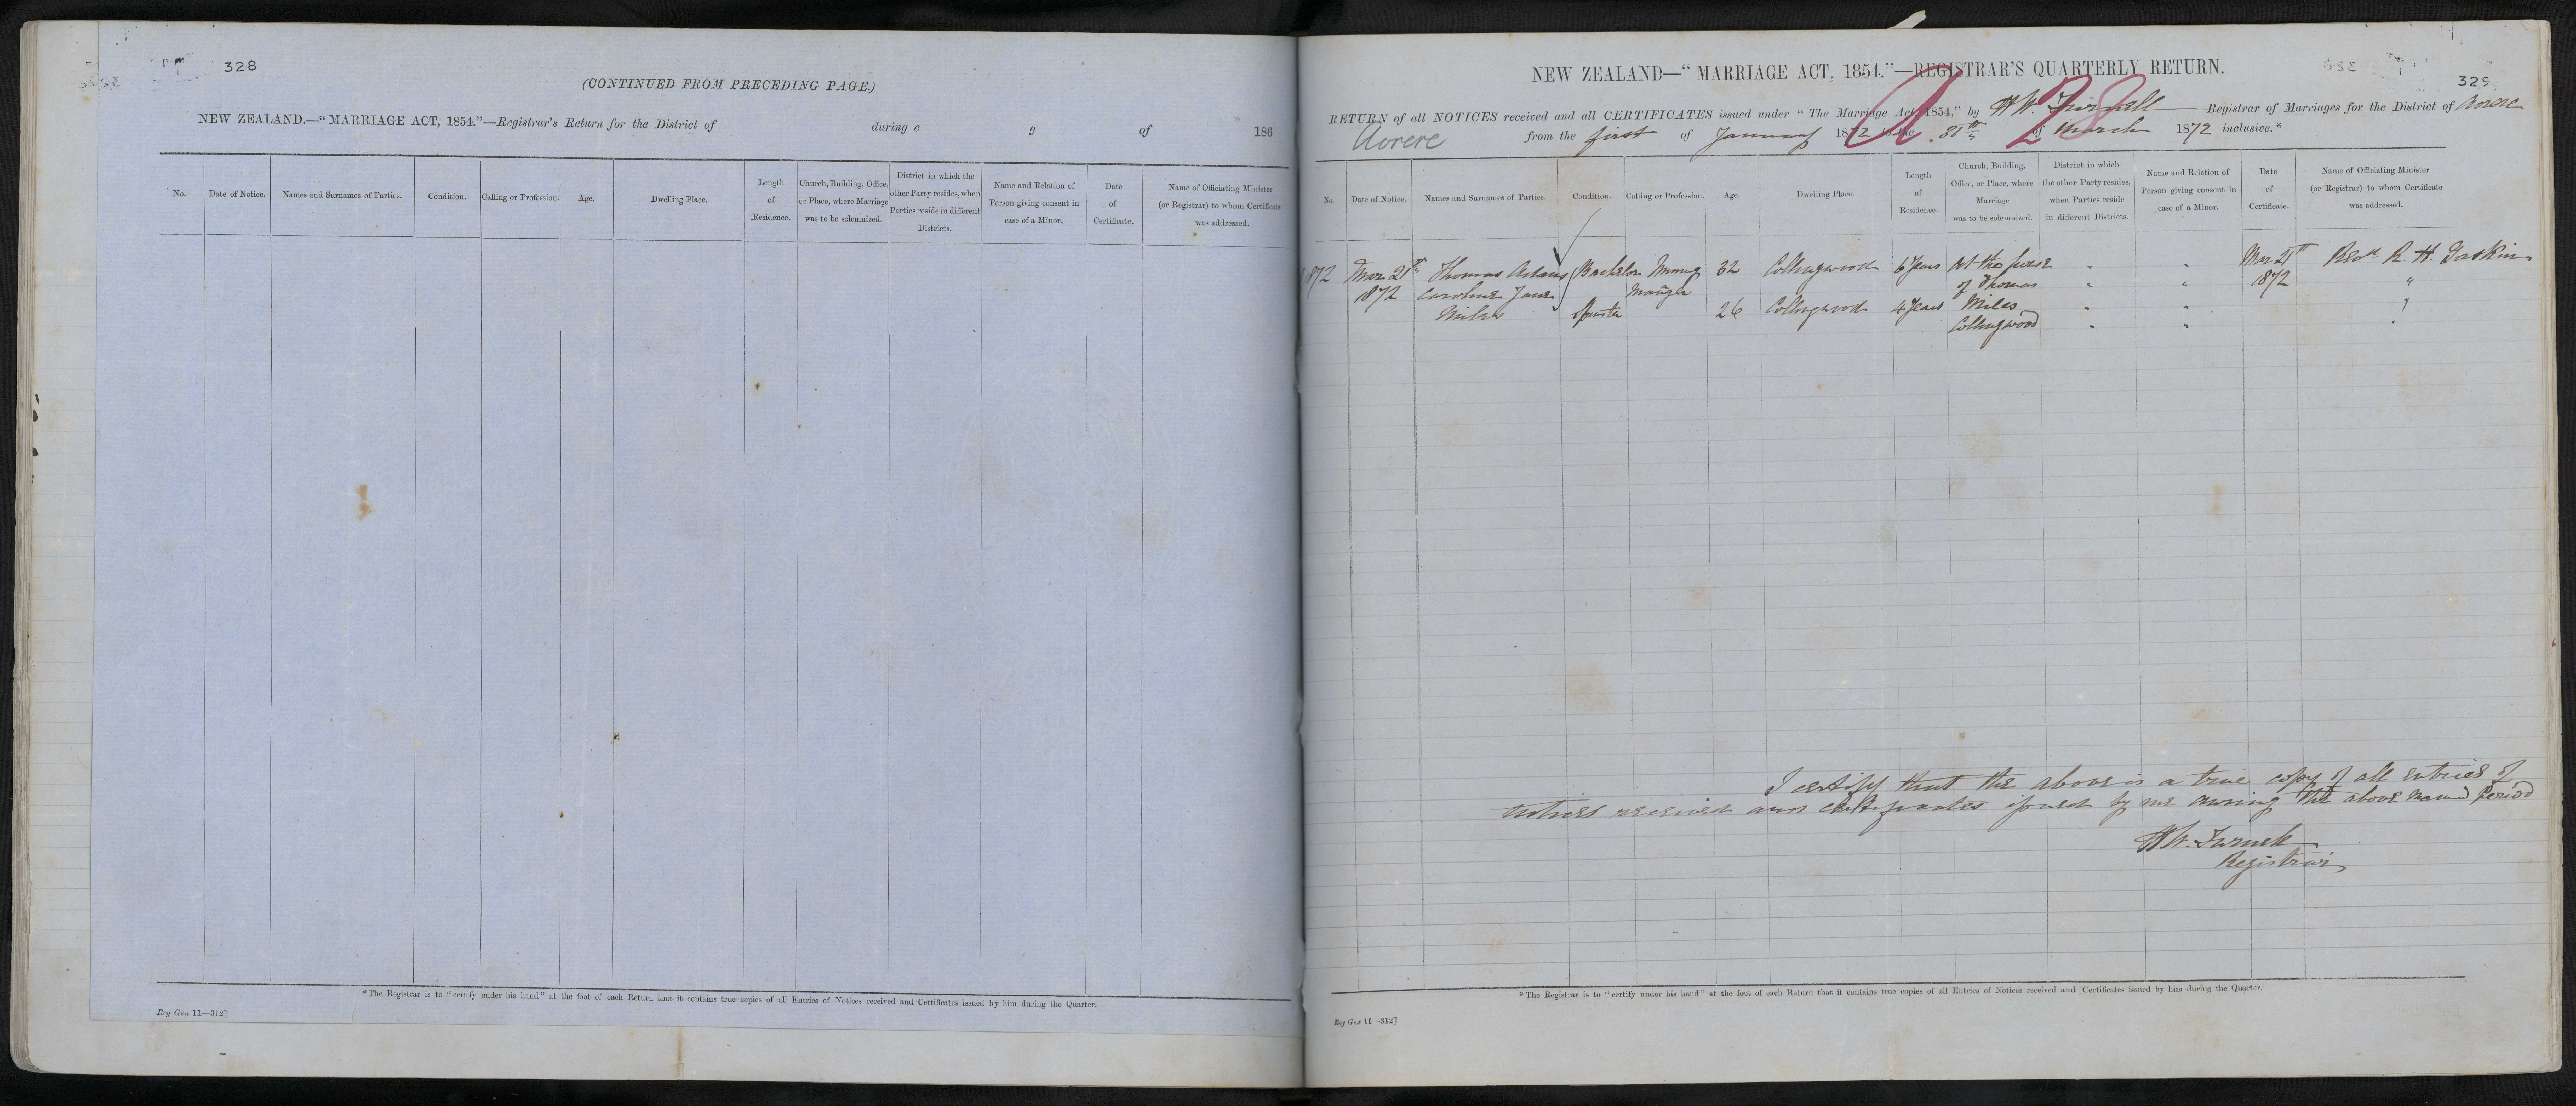 328
(CONTINUED FROM PRECEDING PAGE.)
NEW ZEALAND.—"MARRIAGE ACT, 1854."—Registrar's Return for the District of during e g of 186
No.
Date of Notice.
Names and Surnames of Parties.
Condition.
Calling or Profession.
Age.
Dwelling Place.
Length
of
Residence.
Church, Building, Office,
or Place, where Marriage
was to be solemnized.
District in which the
other Party resides, when
Parties reside in different
Districts.
Name and Relation of
Person giving consent in
case of a Minor.
Date
of
Certificate.
Name of Officiating Minister
(or Registrar) to whom Certificate
was addressed.
*The Registrar is to "certify under his hand" at the foot of each Return that it contains true copies of all Entries of Notices received and Certificates issued by him during the Quarter.
Reg Gen 11—312]
329
NEW ZEALAND—"MARRIAGE ACT, 1854."—REGISTRAR'S QUARTERLY RETURN.
RETURN of all NOTICES received and all CERTIFICATES issued under "The Marriage Act, 1854," by H W. Registrar of Marriages for the District of Aorere
Aorere from the first of January 1872 to the 31st of March 1872 inclusive.*
A 28
No.
Date of Notice.
Names and Surnames of Parties.
Condition.
Calling or Profession.
Age.
Dwelling Place.
Length
of
Residence.
Church, Building,
Office, or Place, where
Marriage
was to be solemnized.
District in which
the other Party resides,
when Parties reside
in different Districts.
Name and Relation of
Person giving consent in
case of a Minor.
Date
of
Certificate.
Name of Officiating Minister
(or Registrar) to whom Certificate
was addressed.
1872 Mar 21st Thomas Adams Bachelor Mining 32 Collingwood 6 years At the house " " Mar 21st Revd R. H. Gaskin
1872 Caroline Jane Manager of Thomas " " 1872 "
Miles Spinster 26 Collingwood 4 years Miles " " "
Collingwood " " "
I certify that the above is a true copy of all entries of
notices received and certificates issued by me during the above named period
H W.
Registrar
*The Registrar is to "certify under his hand" at the foot of each Return that it contains true copies of all Entries of Notices received and Certificates issued by him during the Quarter.
Reg Gen 11—312]